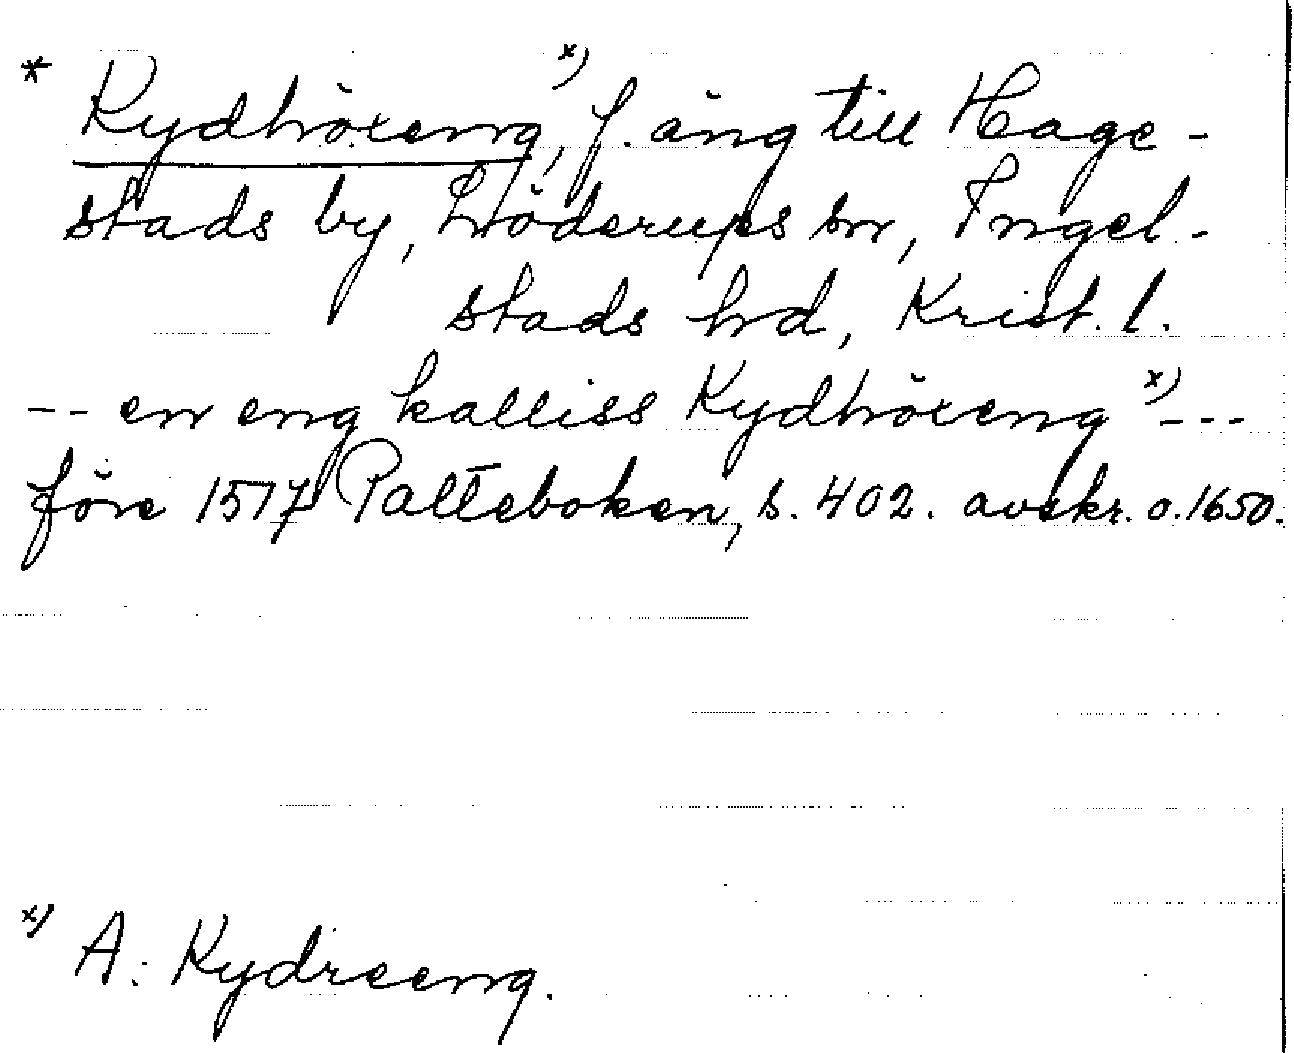 * Kydhöxeng x), f. äng till Hage-
stads by, Löderups sn, Ingel-
stads hd, Krist. l.
-- en eng kalliss Kydhöxeng x)---
före 1517 Palteboken, s. 402. avskr. o. 1650.
x) A: Kydreeng.